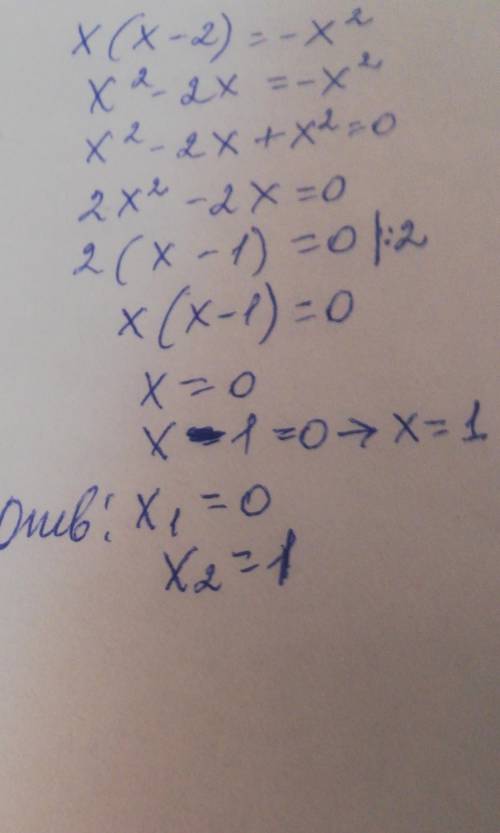 x(x-2)=-x²
x²-2x=-x²
x²-2x+x²=0
2x²-2x=0
2(x-1)=0 |:2
x(x-1)=0
x=0
x-1=0→x=1
Отв: x₁=0
x₂=1